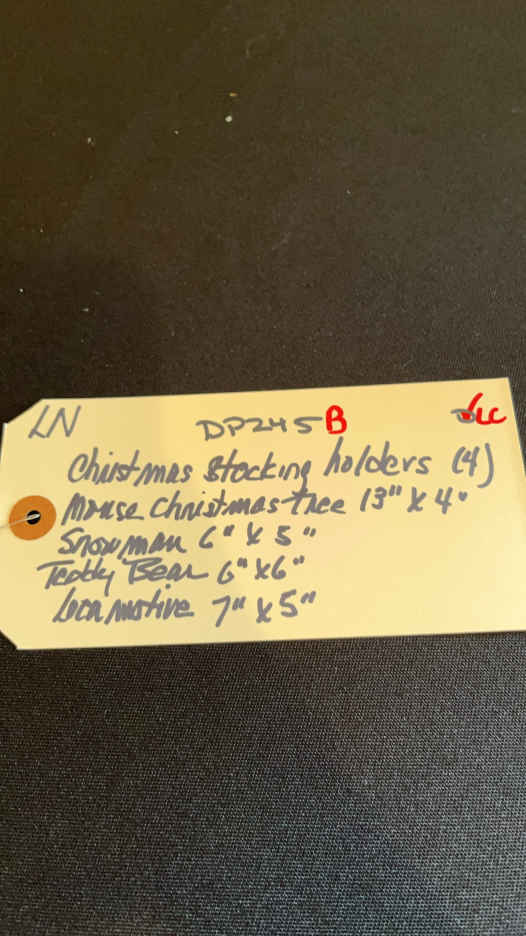 LN DP245B LC
Christmas Stocking holders (4)
Mouse Christmas tree 13" x 4"
Snowman 6" x 5"
Teddy Bear 6" x 6"
Locomotive 7" x 5"